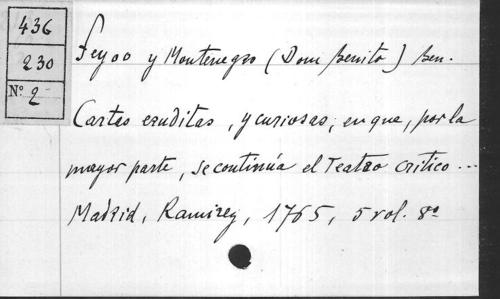 436
230
Nº 2
Feyoo y Montenegro (Dom Benito) Ben.
Cartas eruditas, y curiosas, en que, por la
mayor parte, se continúa el Teatro critico...
Madrid, Ramirez, 1765, 5 vol. 8º